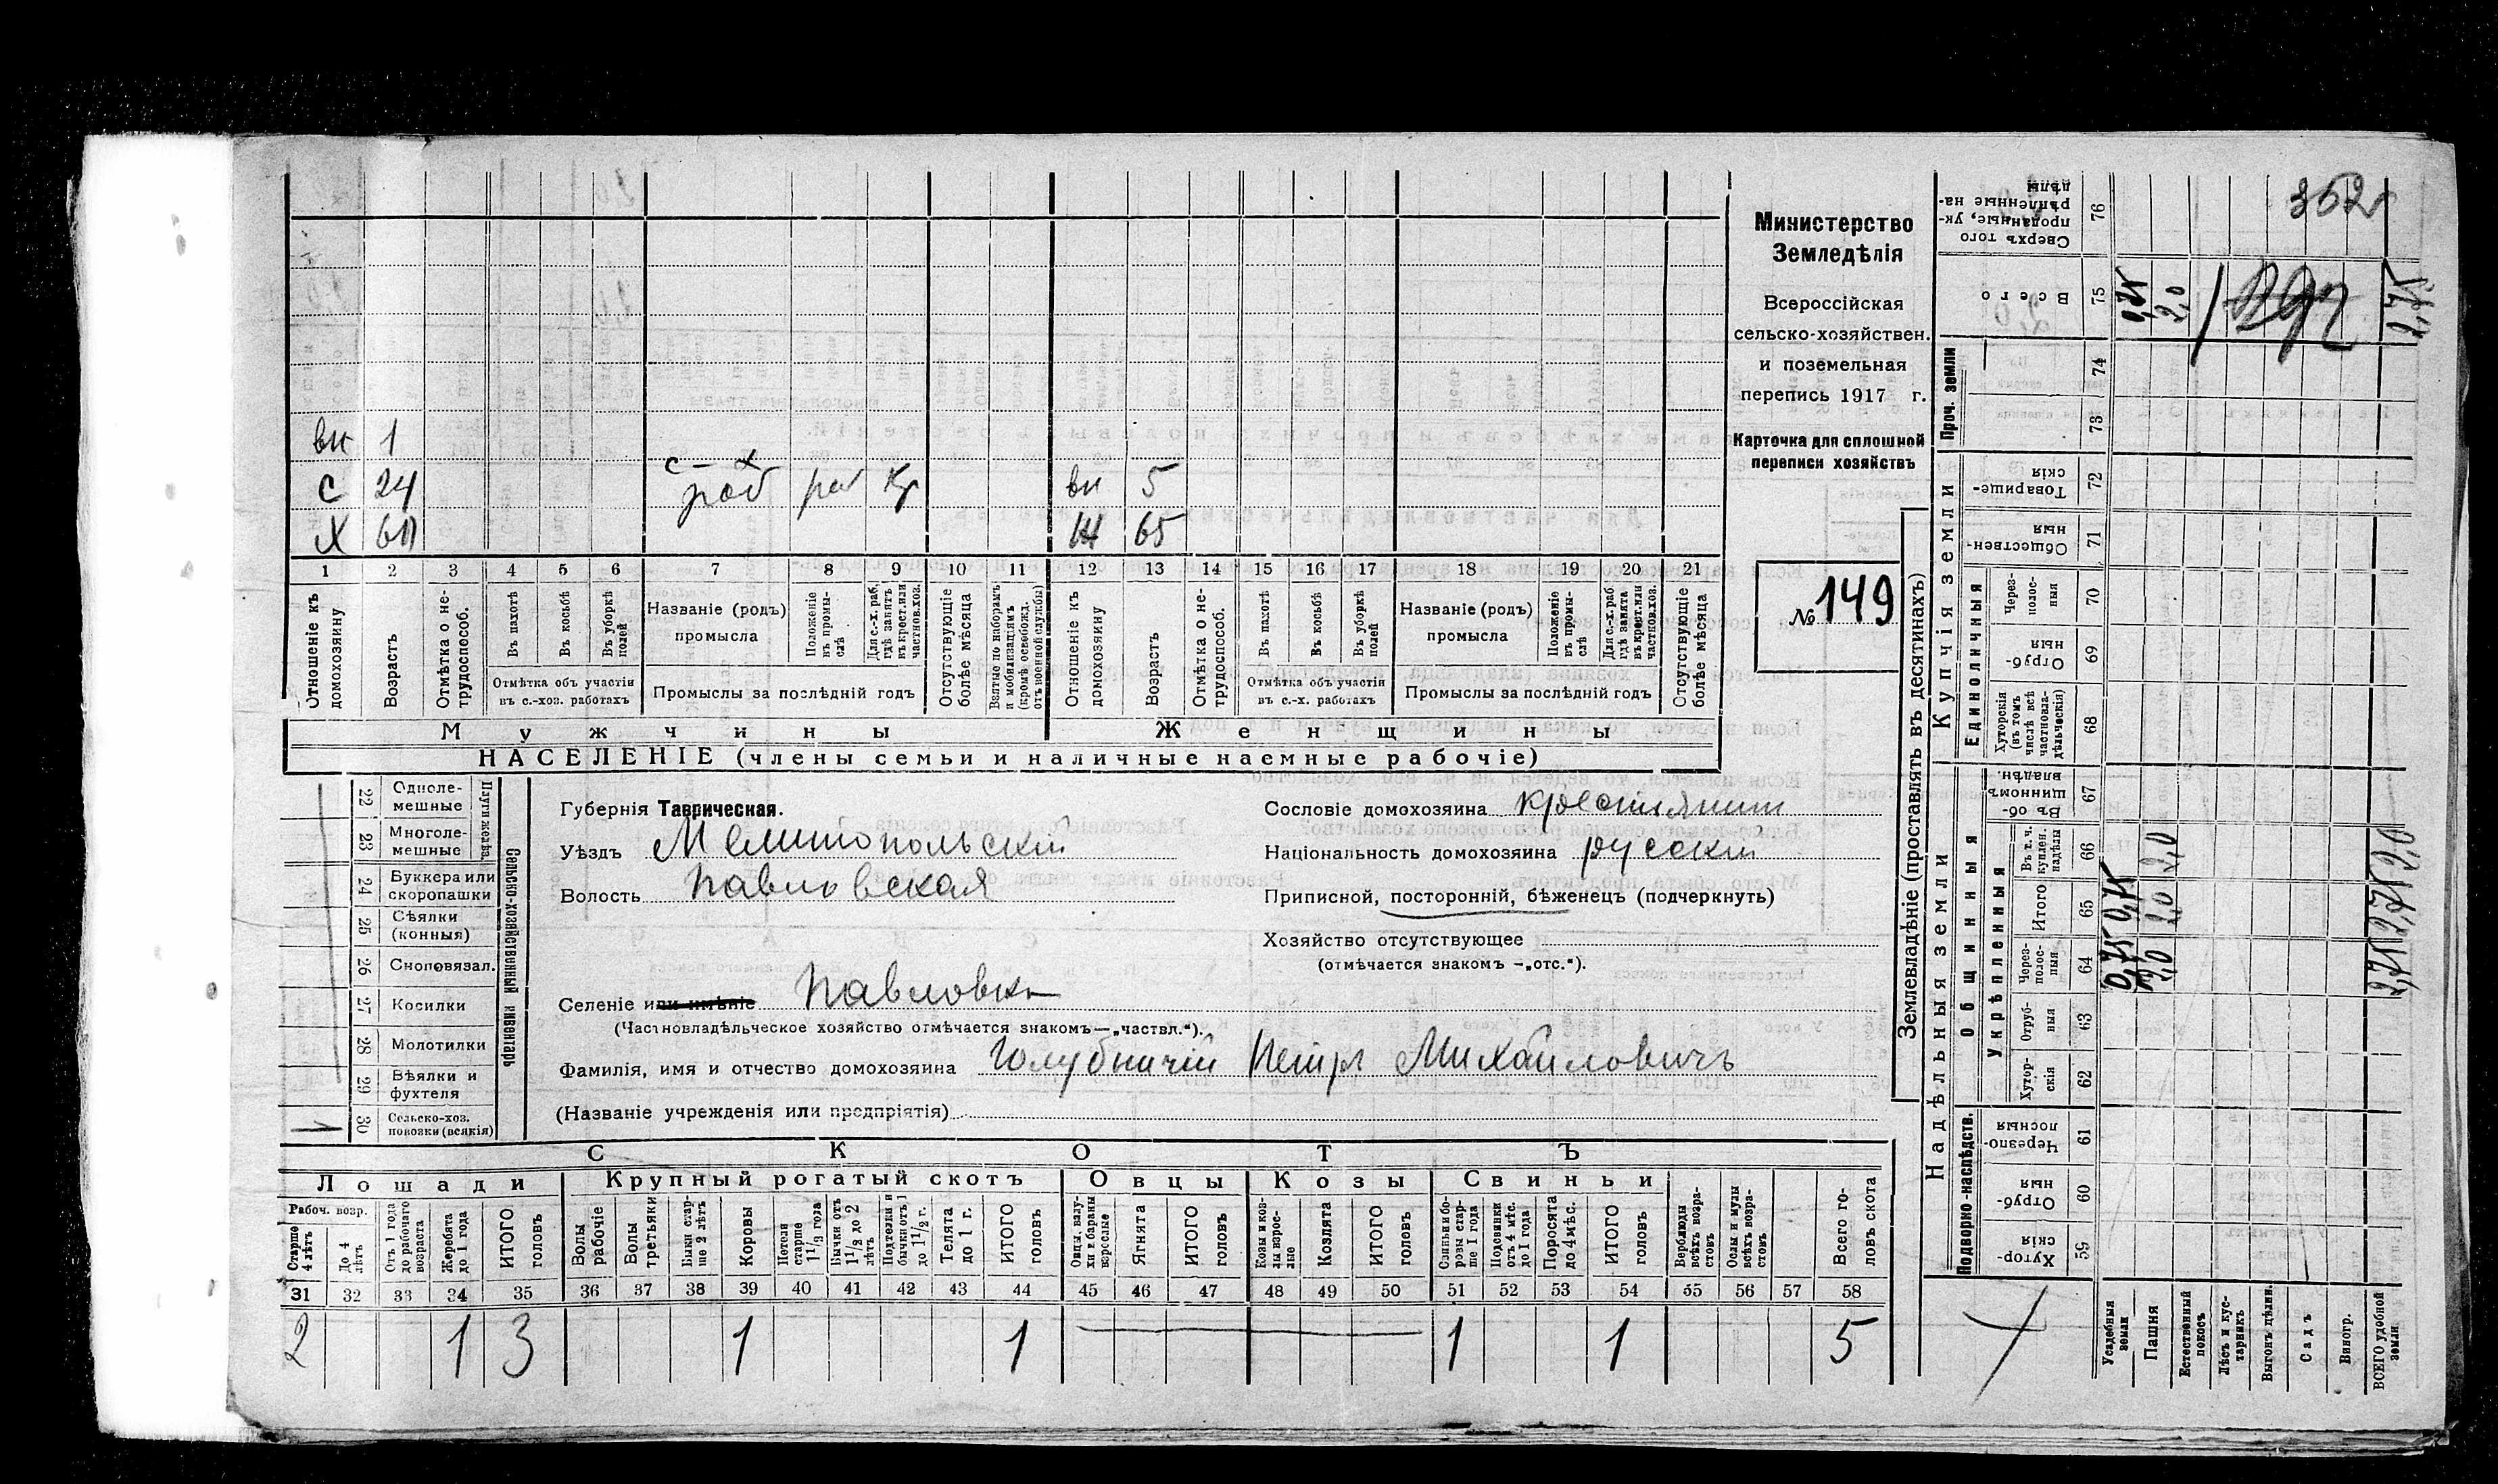 вн 1
с 24 с-х раб раб Кр вн 5
х 60 ж 65
1 2 3 4 5 6 7 8 9 10 11 12 13 14 15 16 17 18 19 20 21
Отношеніе къ домохозяину
Возрастъ
Отмѣтка о не-трудоспособ.
Въ пахотѣ
Въ косьбѣ
Въ уборкѣ полей
Отмѣтка объ участіи въ с.-хоз. работахъ
Названіе (родъ) промысла
Положеніе въ промы-слѣ
Для с.-х. раб. гдѣ занятъ въ крест. или частнов. хоз.
Промыслы за послѣдній годъ
Отсутствующіе болѣе мѣсяца
Взятые по наборамъ и мобилизаціямъ (кромѣ освобожд. отъ военной службы)
Отношеніе къ домохозяину
Возрастъ
Отмѣтка о не-трудоспособ.
Въ пахотѣ
Въ косьбѣ
Въ уборкѣ полей
Отмѣтка объ участіи въ с.-х. работахъ
Названіе (родъ) промысла
Положеніе въ промы-слѣ
Для с.-х. раб. гдѣ занята въ крест. или частков. хоз.
Промыслы за послѣдній годъ
Отсутствующіе болѣе мѣсяца
Мужчины Женщины
НАСЕЛЕНІЕ (члены семьи и наличные наемные рабочіе)
Министерство
Земледѣлія
Всероссійская
сельско-хозяйствен.
и поземельная
перепись 1917 г.
Карточка для сплошной
переписи хозяйствъ
№ 149
22 Одноле-мешные
23 Многоле-мешные
Плуги желѣз.
24 Буккера или скоропашки
25 Сѣялки (конныя)
26 Сноповязал.
27 Косилки
28 Молотилки
29 Вѣялки и фухтеля
30 Сельско-хоз. повозки (всякія)
1
Сельско-хозяйственный инвентарь
Губернія Таврическая.
Уѣздъ Мелитопольскій
Волость Павловская
Селеніе или имѣніе Павловка
(Частновладѣльческое хозяйство отмѣчается знакомъ—„частвл.“).
Фамилія, имя и отчество домохозяина Голубничій Петръ Михайловичъ
(Названіе учрежденія или предпріятія)
Сословіе домохозяина крестьянин
Національность домохозяина русскій
Приписной, посторонній, бѣженецъ (подчеркнуть)
Хозяйство отсутствующее
(отмѣчается знакомъ —„отс.“).
СКОТЪ
Лошади Крупный рогатый скотъ Овцы Козы Свиньи
Рабоч. возр.
Старше 4 лѣтъ
До 4 лѣтъ
Отъ 1 года до рабочаго возраста
Жеребята до 1 года
ИТОГО головъ
Волы рабочіе
Волы третьяки
Быки стар-ше 2 лѣтъ
Коровы
Нетели старше 1½ года
Бычки отъ 1½ до 2 лѣтъ
Подтелки и бычки отъ 1 до 1½ г.
Телята до 1 г.
ИТОГО головъ
Овцы, валу-хи и бараны взрослые
Ягнята
ИТОГО головъ
Козы и коз-лы взрос-лые
Козлята
ИТОГО головъ
Свиньи и бо-ровы стар-ше 1 года
Подсвинки отъ 4 мѣс. до 1 года
Поросята до 4 мѣс.
ИТОГО головъ
Верблюды всѣхъ возра-стовъ
Ослы и мулы всѣхъ возра-стовъ
Всего го-ловъ скота
31 32 33 34 35 36 37 38 39 40 41 42 43 44 45 46 47 48 49 50 51 52 53 54 55 56 57 58
2 1 3 1 1 1 1 5
Землевладѣніе (проставлять въ десятинахъ)
Надѣльныя земли Купчія земли Проч. земли
Подворно-наслѣдств. Общинныя Единоличныя
Укрѣпленныя
Сверхъ того проданные, ук-рѣпленные на-дѣлы 76
352
Всего 75
0,75 2,0 2,75
292
74
73
Товарище-скія 72
Обществен-ныя 71
Через-полос-ныя 70
Отруб-ныя 69
Хуторскія (въ томъ числѣ всѣ частновла-дѣльческія) 68
Въ об-щинномъ владѣн. 67
Въ т. ч. куплен. надѣлы 66
2,0 2,0
Итого 65
0,75 2,0 2,75
Через-полос-ныя 64
0,75 2,0 2,75
Отруб-ныя 63
Хутор-скія 62
Черезпо-лосныя 61
Отруб-ныя 60
Хутор-скія 59
Усадебныя земли
Пашня
Естественный покосъ
Лѣсъ и кус-тарникъ
Выгонъ дѣлин.
Садъ
Виногр.
ВСЕГО удобной земли